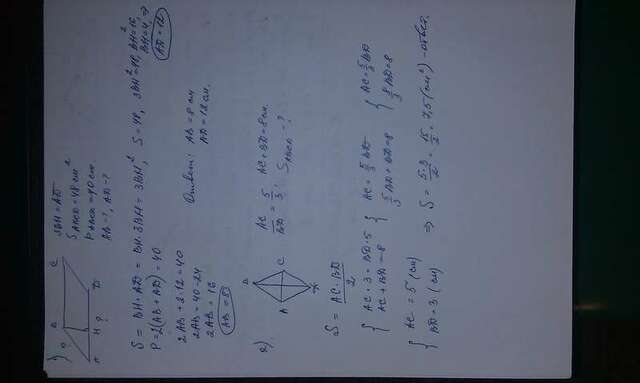 1)
B C
A H ? D
3BH = AD
S ABCD = 48 см²
P ABCD = 40 см
AB - ?, AD - ?
S = BH · AD = BH · 3BH = 3BH², S = 48, 3BH² = 48, BH² = 16,
BH = 4, ⇒
AD = 12
P = 2(AB + AD) = 40
2AB + 2·12 = 40
2AB = 40 - 24
2AB = 16
AB = 8
Ответ: AB = 8 см
AD = 12 см.
2)
B C
A D
AC/BD = 5/3; AC + BD = 8 см.
S ABCD - ?
S = AC · BD / 2
{ AC · 3 = BD · 5 { AC = 5/3 BD { AC = 5/3 BD
AC + BD = 8 5/3 BD + BD = 8 8/3 BD = 8
{ AC = 5 (см) ⇒ S = 5·3/2 = 15/2 = 7,5 (см²) - ответ.
BD = 3 (см)